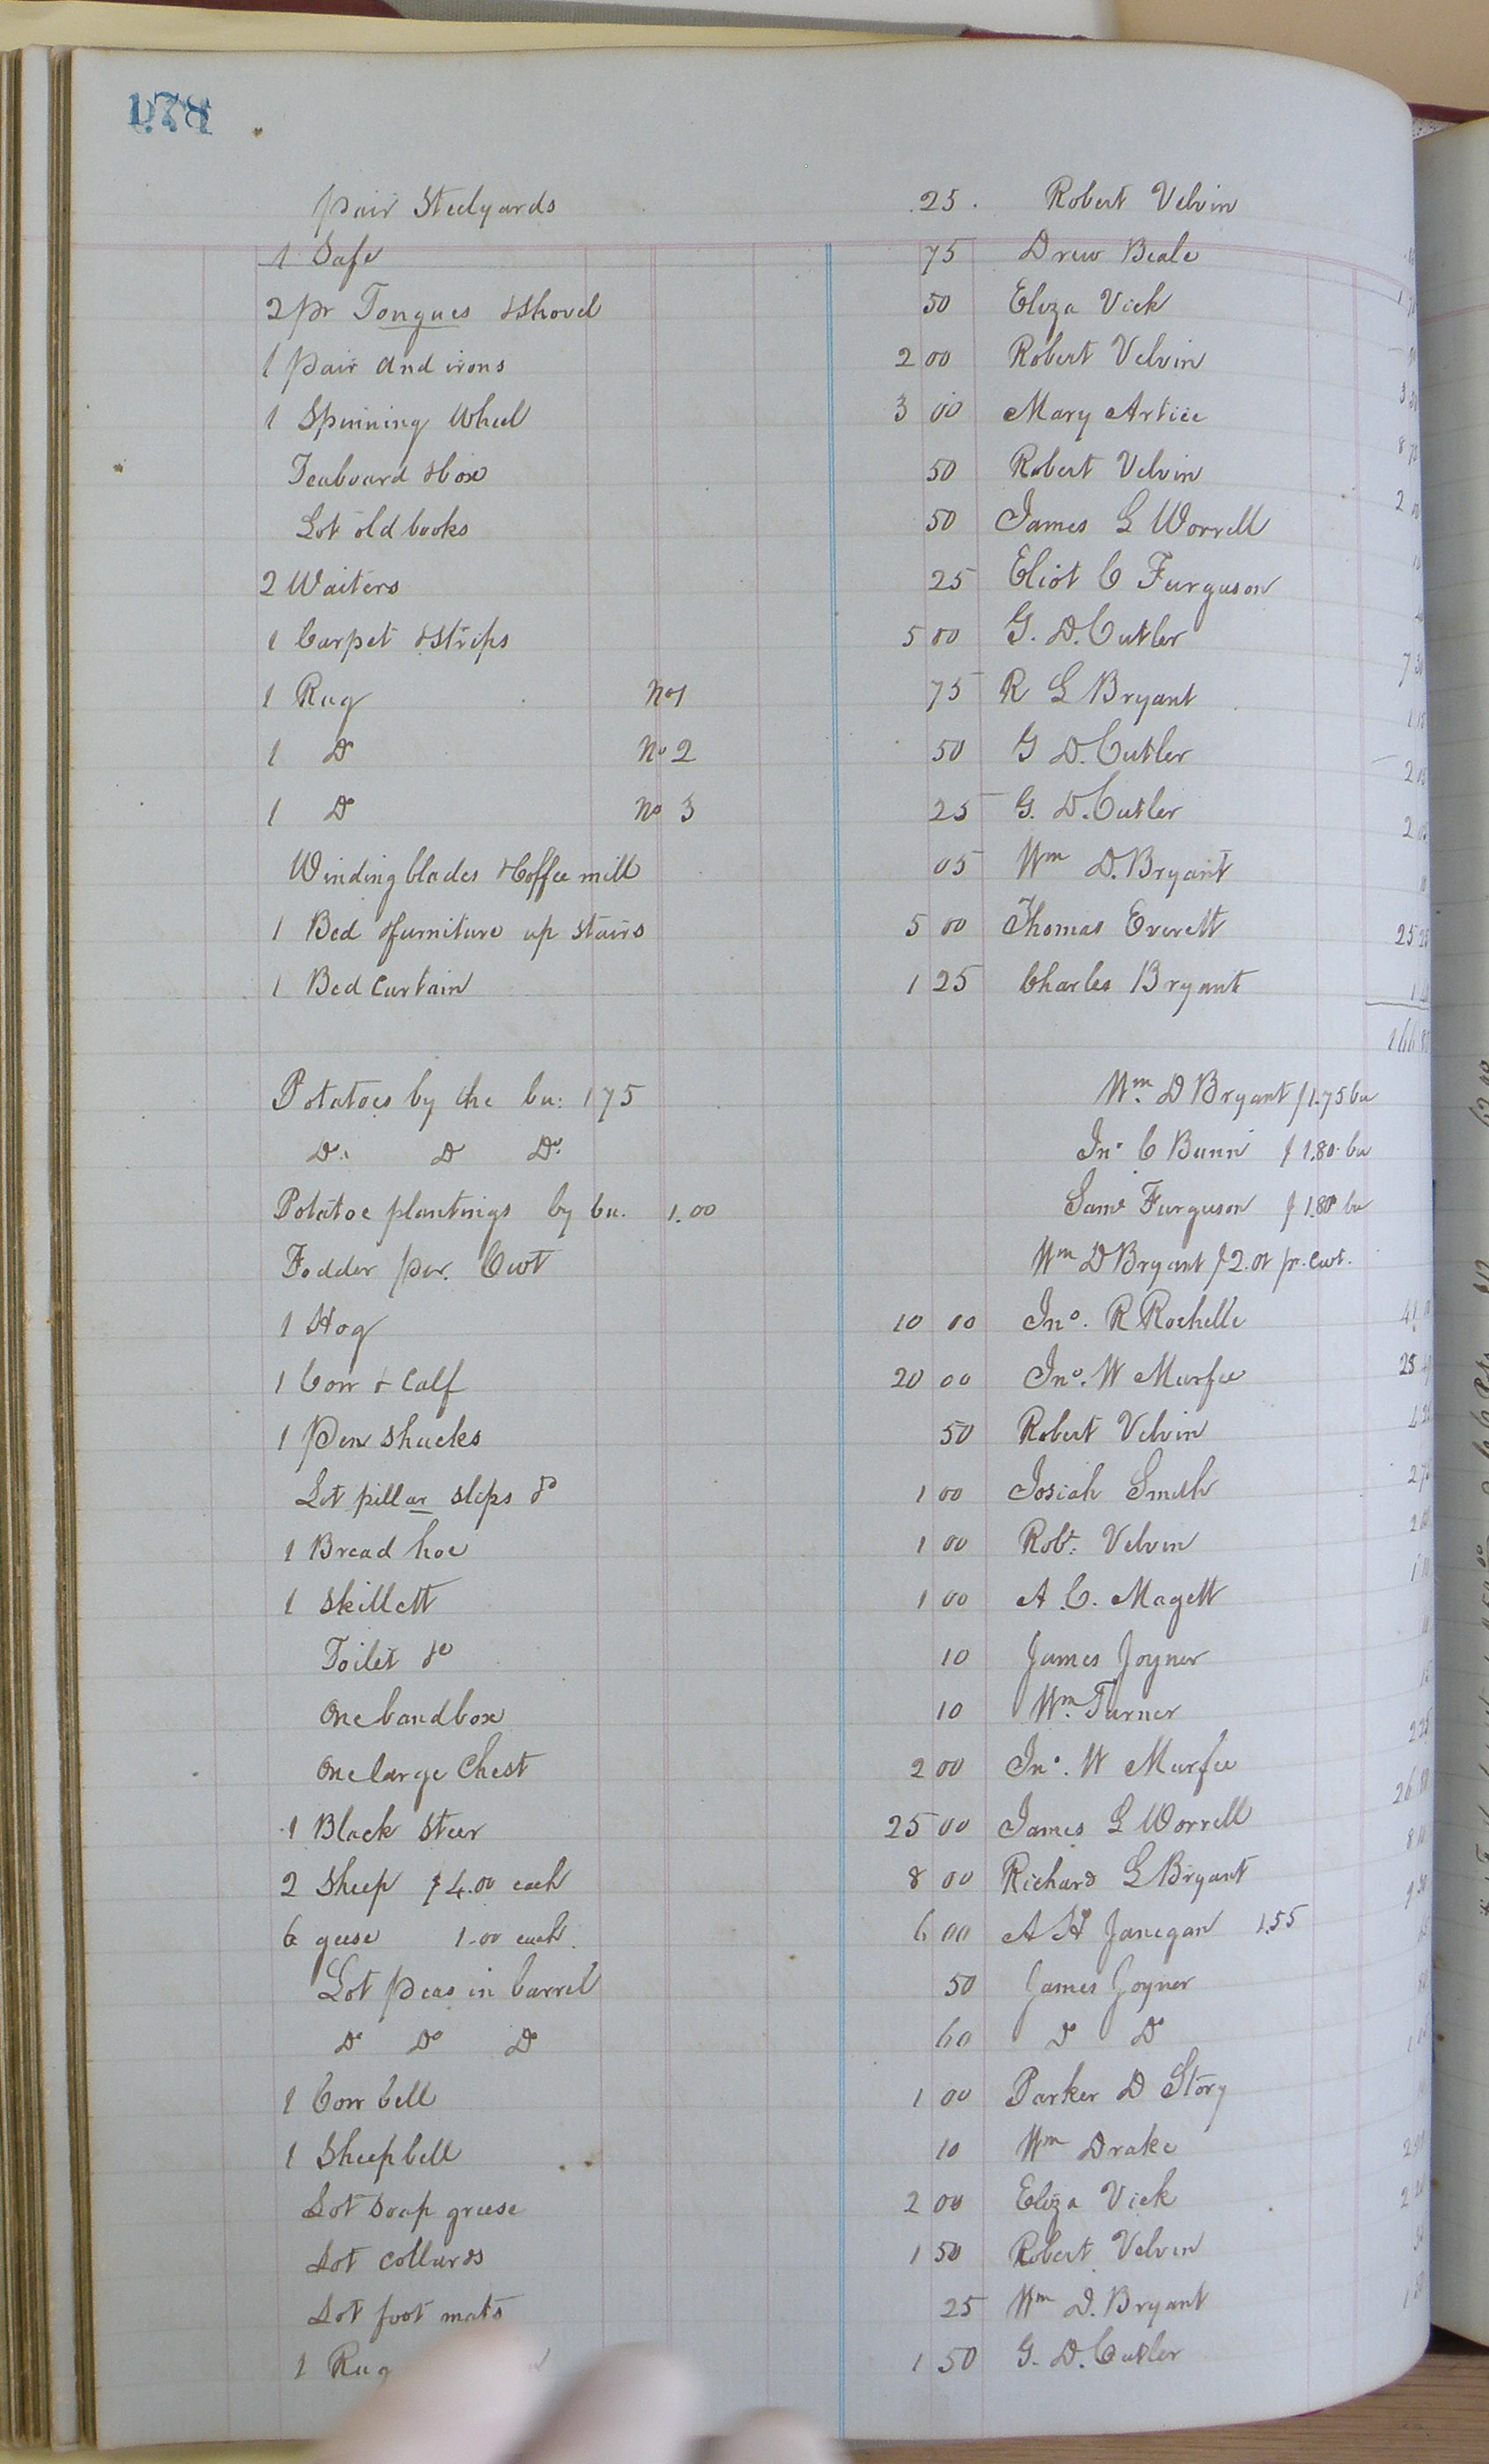 178
pair Steelyards 25. Robert Velvin
1 Safe 75 Drew Beale
2 pr Tongues & Shovel 50 Eliza Vick
1 pair And irons 2 00 Robert Velvin
1 Spinning Wheel 3 00 Mary Artice
Teaboard & box 50 Robert Velvin
Lot old books 50 James L Worrell
2 Waiters 25 Eliot C Furguson
1 Carpet & Strips 5 00 G. D. Cutler
1 Rug No 1 75 R L Bryant
1 Do No 2 50 G D. Cutler
1 Do No 3 25 G. D. Cutler
Winding blades & Coffee mill 05 Wm D. Bryant
1 Bed & furniture up Stairs 5 00 Thomas Everett 25 25
1 Bed Curtain 1 25 Charles Bryant
Potatoes by the bu: 1 75 Wm. D Bryant $1.75 bu
Do. Do Do. Jno C Bunn $1.80 bu
Potatoe plantings by bu. 1.00 Saml Furguson $1.80 bu
Fodder per. Cwt Wm D Bryant $2.01 pr. Cwt.
1 Hog 10 00 Jno. R Rochelle
1 Cow & Calf 20 00 Jno. W Murfee
1 Pen Shucks 50 Robert Velvin
Lot pillar slips &c 1 00 Josiah Smith
1 Bread hoe 1 00 Robt. Velvin
1 Skillett 1 00 A. C. Magett
Toilet &c 10 James Joyner
One bandbox 10 Wm. Turner
One large Chest 2 00 Jno. W Murfee
1 Black Steer 25 00 James L Worrell
2 Sheep $4.00 each 8 00 Richard L Bryant
6 geese 1.00 each 6 00 A H Janegan 1.55
Lot peas in barrel 50 James Joyner
Do Do Do 60 Do Do
1 Cow bell 1 00 Parker D Story
1 Sheep bell 10 Wm Drake
Lot Soap grease 2 00 Eliza Vick
Lot Collards 1 50 Robert Velvin
Lot foot mats 25 Wm D. Bryant
1 Rug 1 50 G. D. Cutler